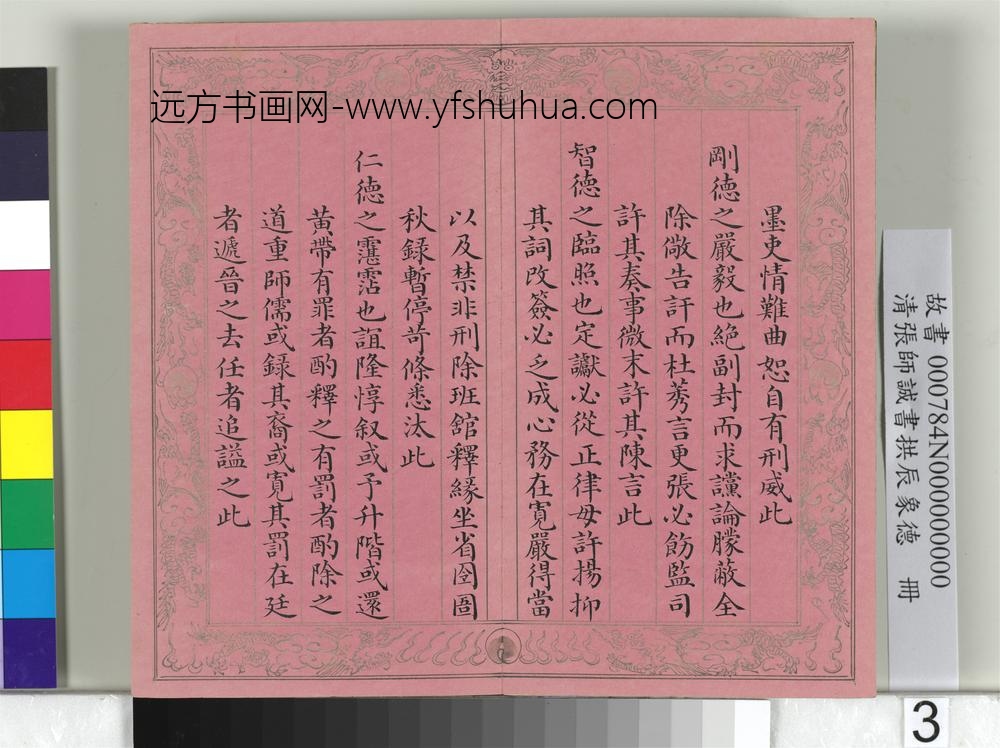 远方书画网-www.yfshuhua.com
墨吏情難曲恕自有刑威此
剛德之嚴毅也絶副封而求讜論朦蔽全
除儆告訐而杜莠言更張必飭監司
許其奏事微末許其陳言此
智德之臨照也定讞必從正律毋許揚抑
其詞改簽必乏成心務在寛嚴得當
以及禁非刑除班舘釋緣坐省囹圄
秋録暫停苛條悉汰此
仁德之霮霑也誼隆惇叙或予升階或還
黃帶有罪者酌釋之有罰者酌除之
道重師儒或録其裔或寛其罰在廷
者遞晉之去任者追謚之此
故書 000784N000000000
清張師誠書拱辰象德 冊
3